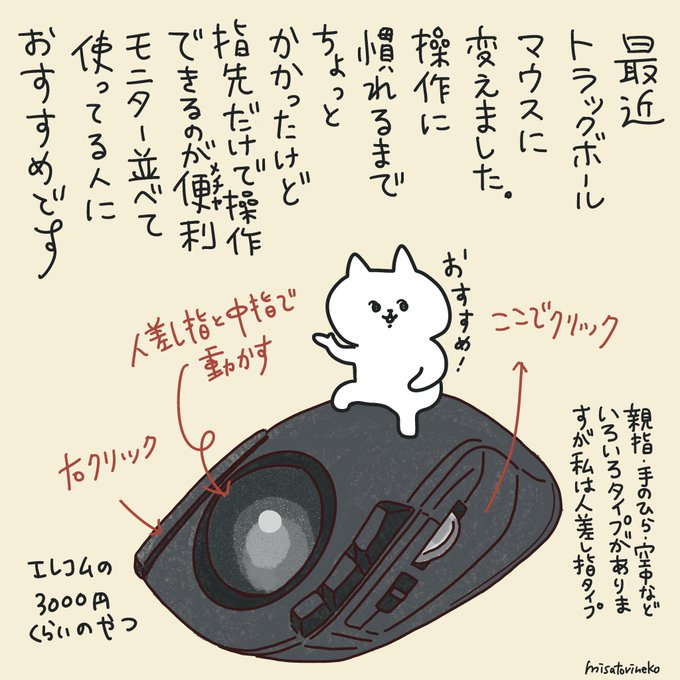 最近
トラックボール
マウスに
変えました。
操作に
慣れるまで
ちょっと
かかったけど
指先だけで操作
できるのが便利
メチャ
モニター並べて
使ってる人に
おすすめです
おすすめ!
ここでクリック
人差し指と中指で
動かす
右クリック
親指・手のひら・空中など
いろいろタイプがありま
すが私は人差し指タイプ
エレコムの
3000円
くらいのやつ
misatovineko